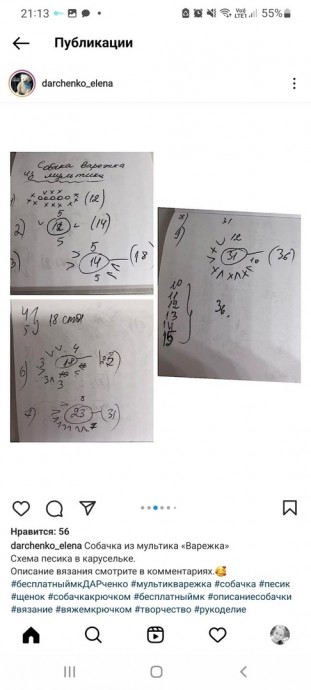 21:13
Vo))
LTE1
55%
Публикации
darchenko_elena
Собачка Варежка
из мультика
(12)
5
2) 12 (14)
5
5
3) 14 (18
5
4)
5) 18 стб
4
6) 3 18
3
8
7) 23 (31)
31
12
31 10 (36)
10
11
12
13
14
15
36.
Нравится: 56
darchenko_elena Собачка из мультика «Варежка»
Схема песика в карусельке.
Описание вязания смотрите в комментариях.🥰
#бесплатныймкДАРченко #мультикварежка #собачка #песик
#щенок #собачкакрючком #бесплатныймк #описаниесобачки
#вязание #вяжемкрючком #творчество #рукоделие